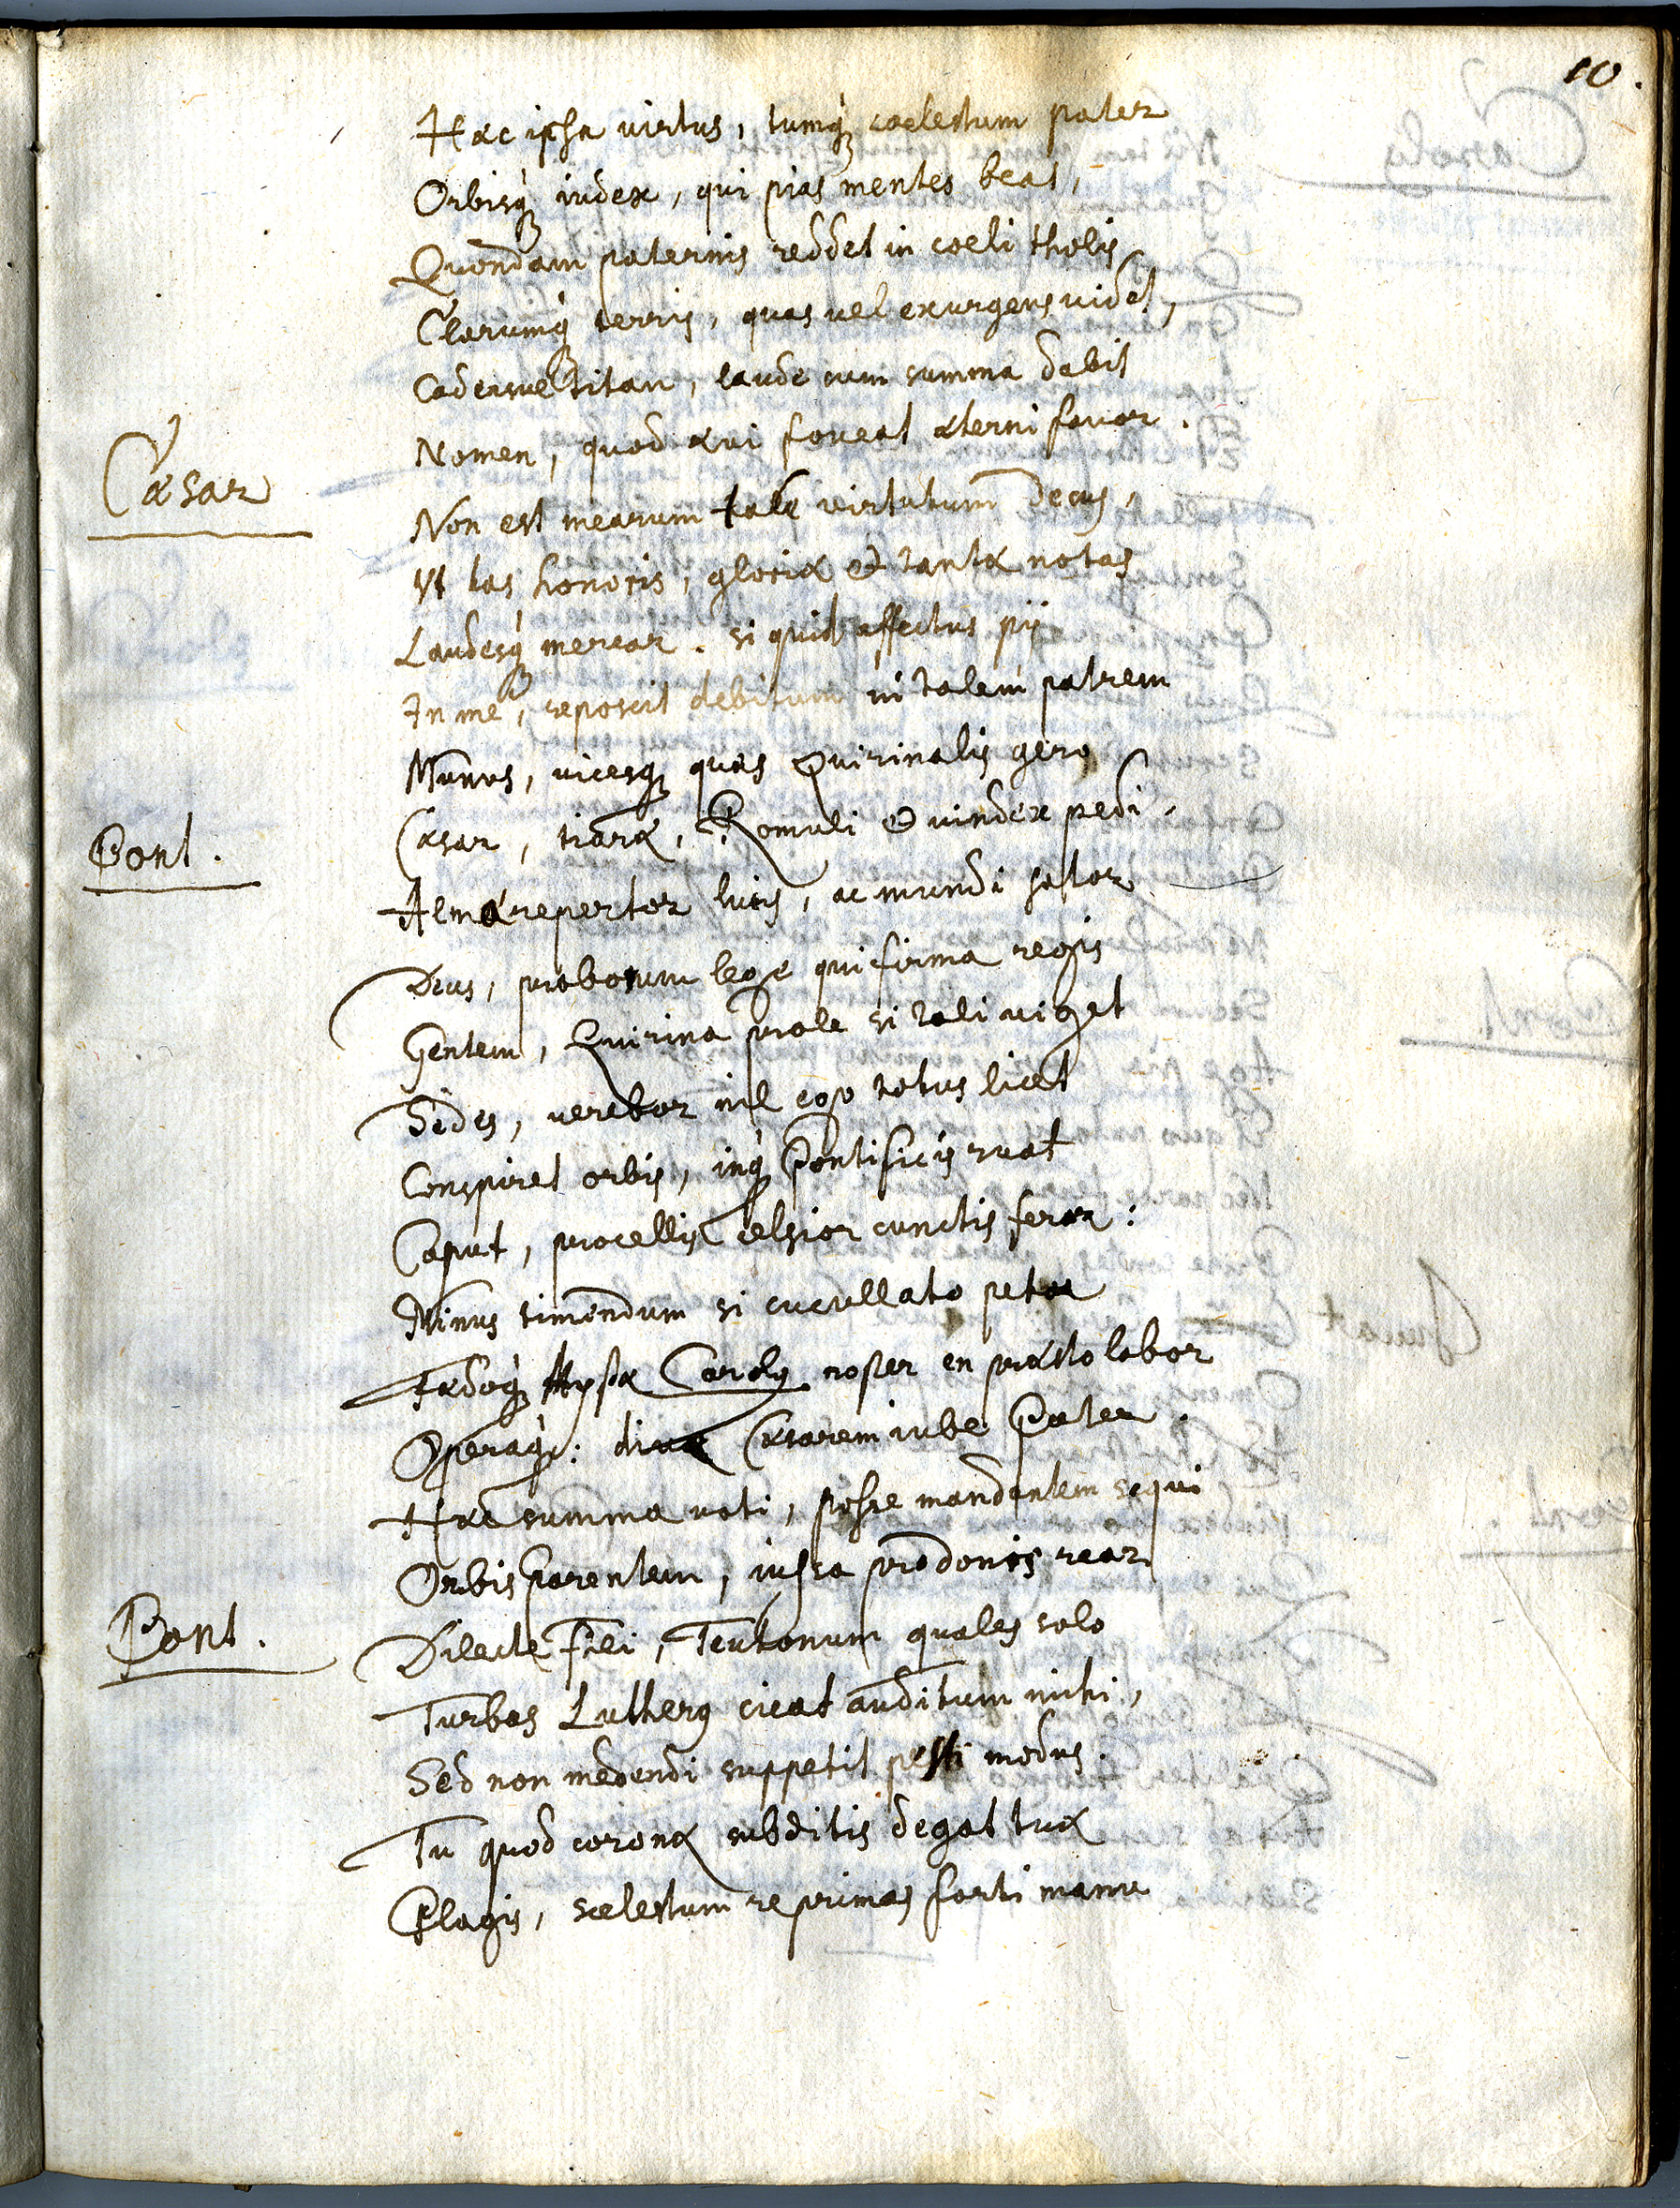 10.
Hæc ipsa virtus, tumq́ꝫ caelestum pater
Orbisq́ꝫ iudex, qui pias mentes beat,
Quondam paternis reddet in coeli tholis
Clarumq́ꝫ terris, quas uel exurgens uidet,
Cadensue titan, laude cum summa dabit
Nomen, quod æui foueat æterni fauor.
Cæsar
Non est mearum tale virtutum decus,
Vt has honoris, gloriæ & tantæ notas
Laudesq́ꝫ merear. si quid affectus pij
In me, reposcit debitum in talem patrem
Munus, uicesqꝫ quas Quirinalis gero
Cæsar, tiaræ, Romuli & uindex pedi.
Pont.
Almæ repertor lucis, ac mundi sator
Deus, proborum lege qui firma regis
Gentem, Quirina prole si tali uiget
Sedes, uerebor nil ego totus licet
Conspiret orbis, inq́ꝫ Pontificijs ruat
Caput, procellis celsior cunctis feror:
Minus timendum si cucullato petor
Fædoqꝫ Carolꝰ noster en præsto labor
Operaq́ꝫ: Cæsarem iube Pater.
Hæc summa uoti, posse mandantem sequi
Orbis parentem, iussa pro donis rear
Pont.
Dilecte fili, Teutonum quales solo
Turbas Lutherꝰ cieat auditum mihi,
Sed non medendi suppetit pesti modus.
Tu quod coronæ subditis degat tuæ
Plagis, scelestum reprimas forti manu